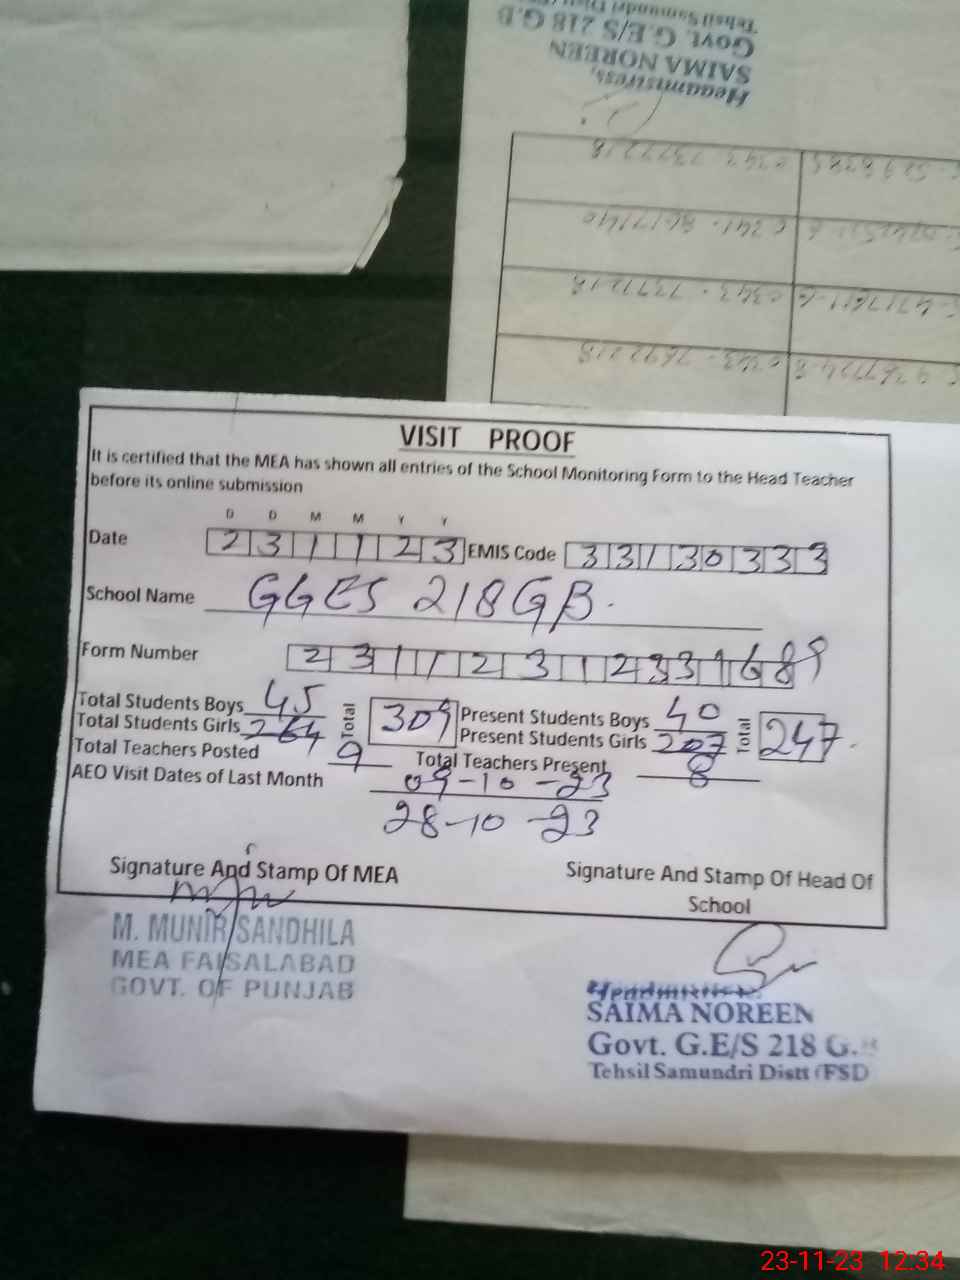 Tehsil Samundri Distt
Govt. G.E/S 218 G.B
SAIMA NOREEN
Headmistress,
0343-7377218
0343-7377218
0343-7692218
VISIT PROOF
It is certified that the MEA has shown all entries of the School Monitoring Form to the Head Teacher
before its online submission
D D M M Y Y
Date 23 11 23 EMIS Code 33130333
School Name GGES 218GB.
Form Number 23112312331689
Total Students Boys 45 Total 309 Present Students Boys 40 Total 247.
Total Students Girls 264 Present Students Girls 207
Total Teachers Posted 9 Total Teachers Present 8
AEO Visit Dates of Last Month 09-10-23
28-10-23
Signature And Stamp Of MEA Signature And Stamp Of Head Of
School
M. MUNIR SANDHILA
MEA FAISALABAD
GOVT. OF PUNJAB
Headmistress,
SAIMA NOREEN
Govt. G.E/S 218 G.B
Tehsil Samundri Distt (FSD
23-11-23 12:34